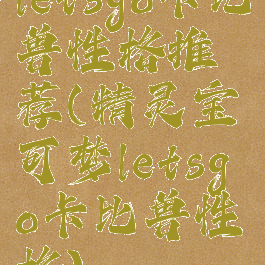 letsgo卡比
兽性格推
荐(精灵宝
可梦letsg
o卡比兽性
格)